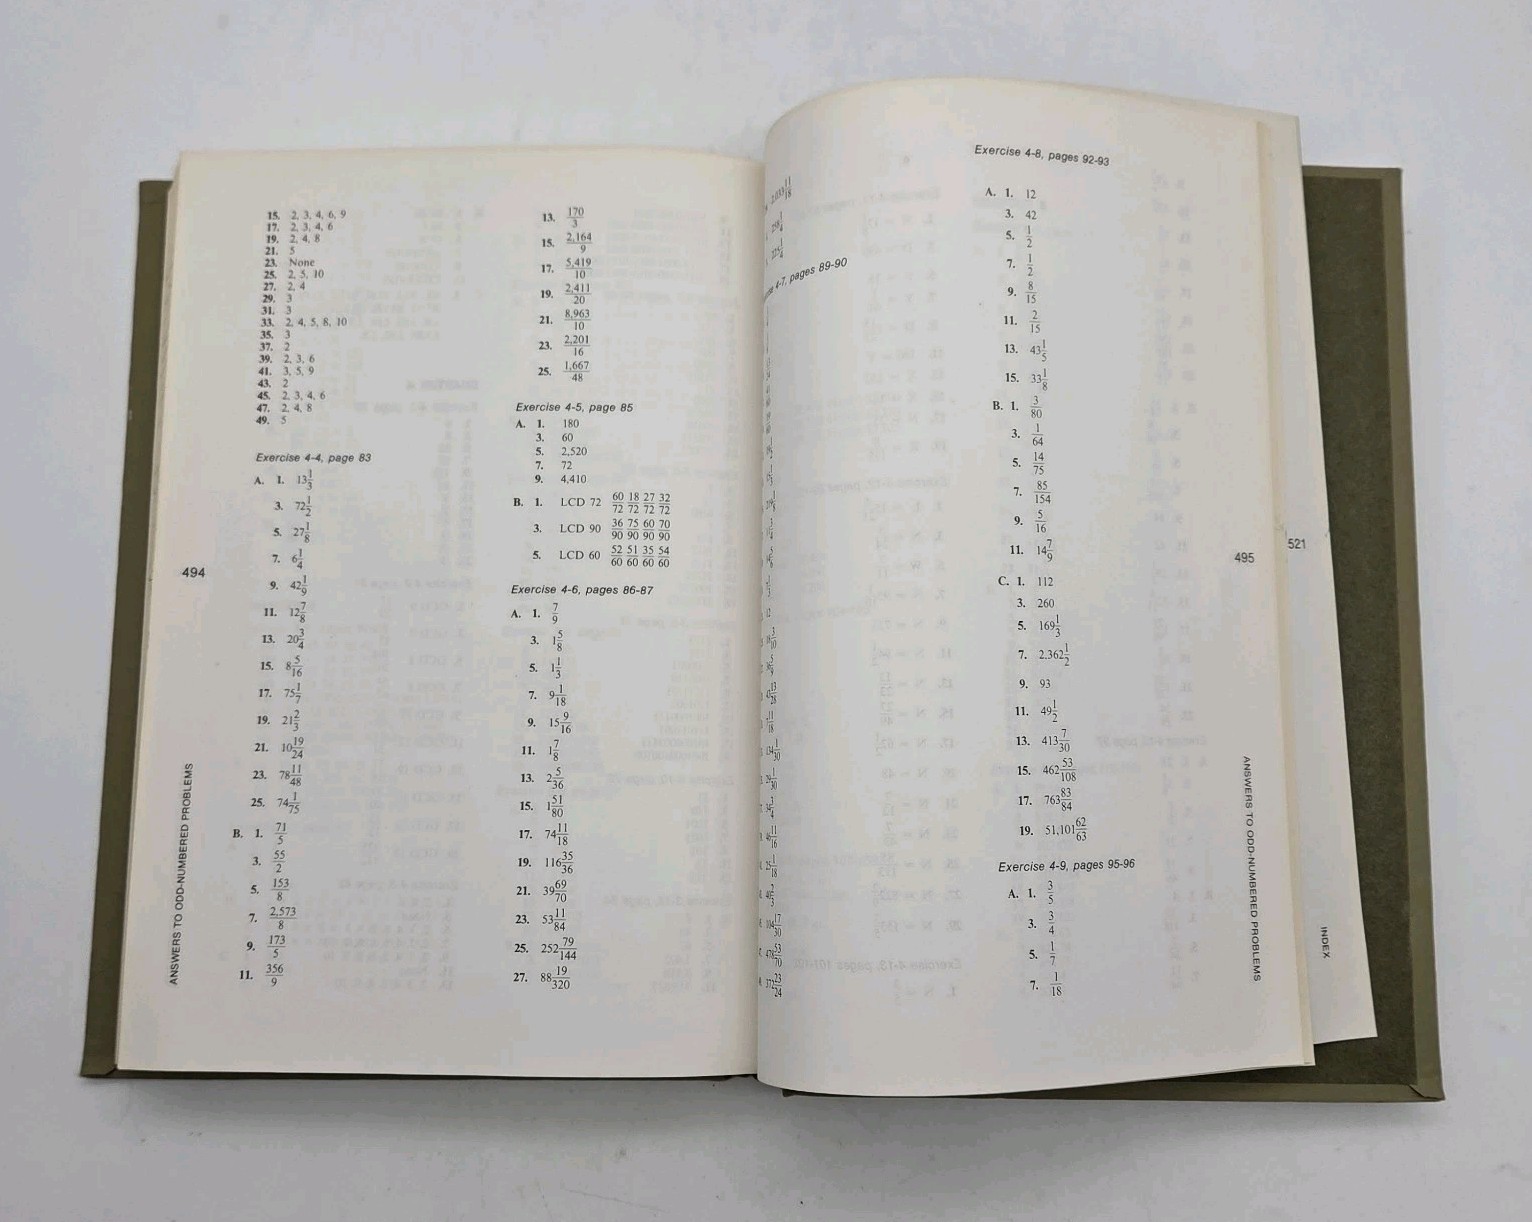 15. 2, 3, 4, 6, 9
17. 2, 3, 4, 6
19. 2, 4, 8
21. 5
23. None
25. 2, 5, 10
27. 2, 4
29. 3
31. 3
33. 2, 4, 5, 8, 10
35. 3
37. 2
39. 2, 3, 6
41. 3, 5, 9
43. 2
45. 2, 3, 4, 6
47. 2, 4, 8
49. 5
Exercise 4-4, page 83
A. 1. 13 1/3
3. 72 1/2
5. 27 1/8
7. 6 1/4
9. 42 1/9
11. 12 7/8
13. 20 3/4
15. 8 5/16
17. 75 1/7
19. 21 2/3
21. 10 19/24
23. 78 11/48
25. 74 1/75
B. 1. 71/5
3. 55/2
5. 153/8
7. 2,573/8
9. 173/5
11. 356/9
494
ANSWERS TO ODD-NUMBERED PROBLEMS
13. 170/3
15. 2,164/9
17. 5,419/10
19. 2,411/20
21. 8,963/10
23. 2,201/16
25. 1,667/48
Exercise 4-5, page 85
A. 1. 180
3. 60
5. 2,520
7. 72
9. 4,410
B. 1. LCD 72 60/72 18/72 27/72 32/72
3. LCD 90 36/90 75/90 60/90 70/90
5. LCD 60 52/60 51/60 35/60 54/60
Exercise 4-6, pages 86-87
A. 1. 7/9
3. 1 5/8
5. 1 1/3
7. 9 1/18
9. 15 9/16
11. 1 7/8
13. 2 5/36
15. 1 51/80
17. 74 11/18
19. 116 35/36
21. 39 69/70
23. 53 11/84
25. 252 79/144
27. 88 19/320
4-7, pages 89-90
Exercise 4-8, pages 92-93
A. 1. 12
3. 42
5. 1/2
7. 1/2
9. 8/15
11. 2/15
13. 43 1/5
15. 33 1/8
B. 1. 3/80
3. 1/64
5. 14/75
7. 85/154
9. 5/16
11. 14 7/9
C. 1. 112
3. 260
5. 169 1/3
7. 2,362 1/2
9. 93
11. 49 1/2
13. 413 7/30
15. 462 53/108
17. 763 83/84
19. 51,101 62/63
Exercise 4-9, pages 95-96
A. 1. 3/5
3. 3/4
5. 1/7
7. 1/18
495
ANSWERS TO ODD-NUMBERED PROBLEMS
521
INDEX